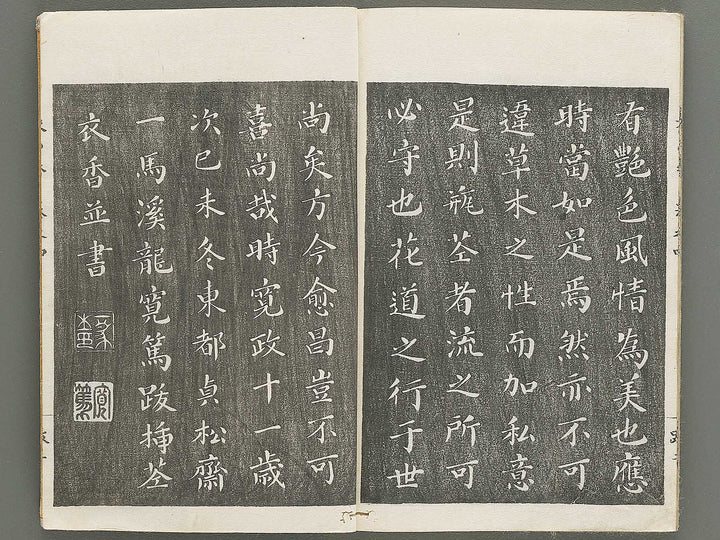 有艷色風情為美也應
時當如是焉然亦不可
違草木之性而加私意
是則瓶荃者流之所可
必守也花道之行于世
尚矣方今愈昌豈不可
喜尚哉時寬政十一歳
次己未冬東都貞松齋
一馬溪龍寬篤跋揷荃
衣香並書